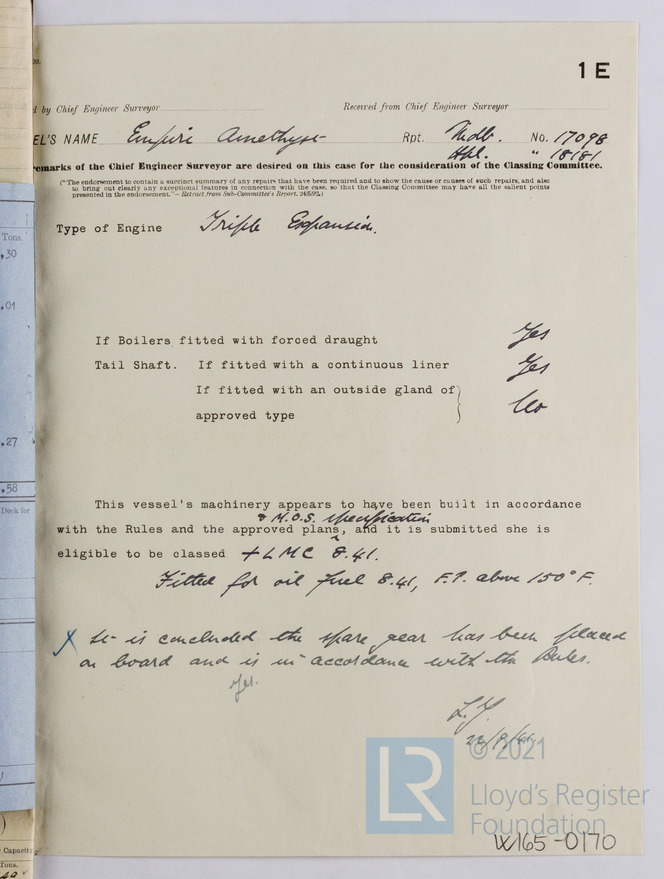 1 E
d by Chief Engineer Surveyor
Received from Chief Engineer Surveyor
EL'S NAME Empire Amethyst Rpt. Mdb. No. 17098
Hpl. " 18181
remarks of the Chief Engineer Surveyor are desired on this case for the consideration of the Classing Committee.
("The endorsement to contain a succinct summary of any repairs that have been required and to show the cause or causes of such repairs, and also
to bring out clearly any exceptional features in connection with the case, so that the Classing Committee may have all the salient points
presented in the endorsement."—Extract from Sub-Committee's Report,
Type of Engine Triple Expansion.
If Boilers fitted with forced draught Yes
Tail Shaft. If fitted with a continuous liner Yes
If fitted with an outside gland of
approved type No
This vessel's machinery appears to have been built in accordance
& M.O.S. specification
with the Rules and the approved plans, and it is submitted she is
eligible to be classed + LMC 8.41.
Fitted for oil fuel 8.41, F.P. above 150° F.
X It is concluded the spare gear has been placed
on board and is in accordance with the Rules.
Yes.
22/9/41
Tons.
.30
.01
.27
.58
Deck for
Capacity
Tons.
LR
© 2021
Lloyd's Register
Foundation
W165-0170